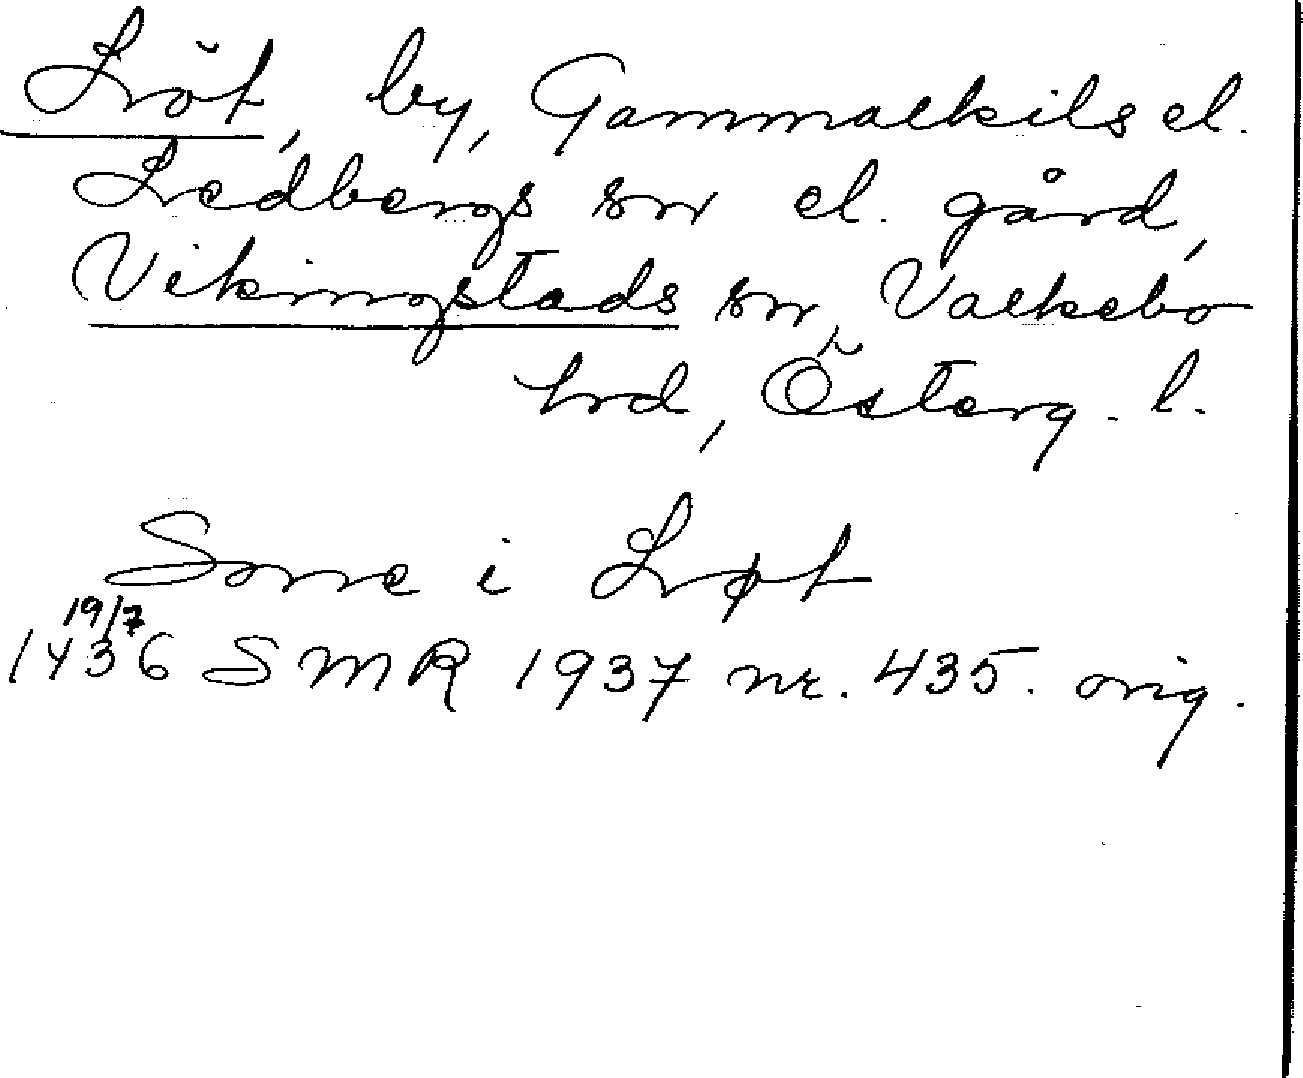 Löt, by, Gammalkils el.
Ledbergs sn el. gård,
Vikingstads sn, Valkebo
hd, Österg. l.
Sone i Løt
19/7
1436 SMR 1937 nr. 435. orig.